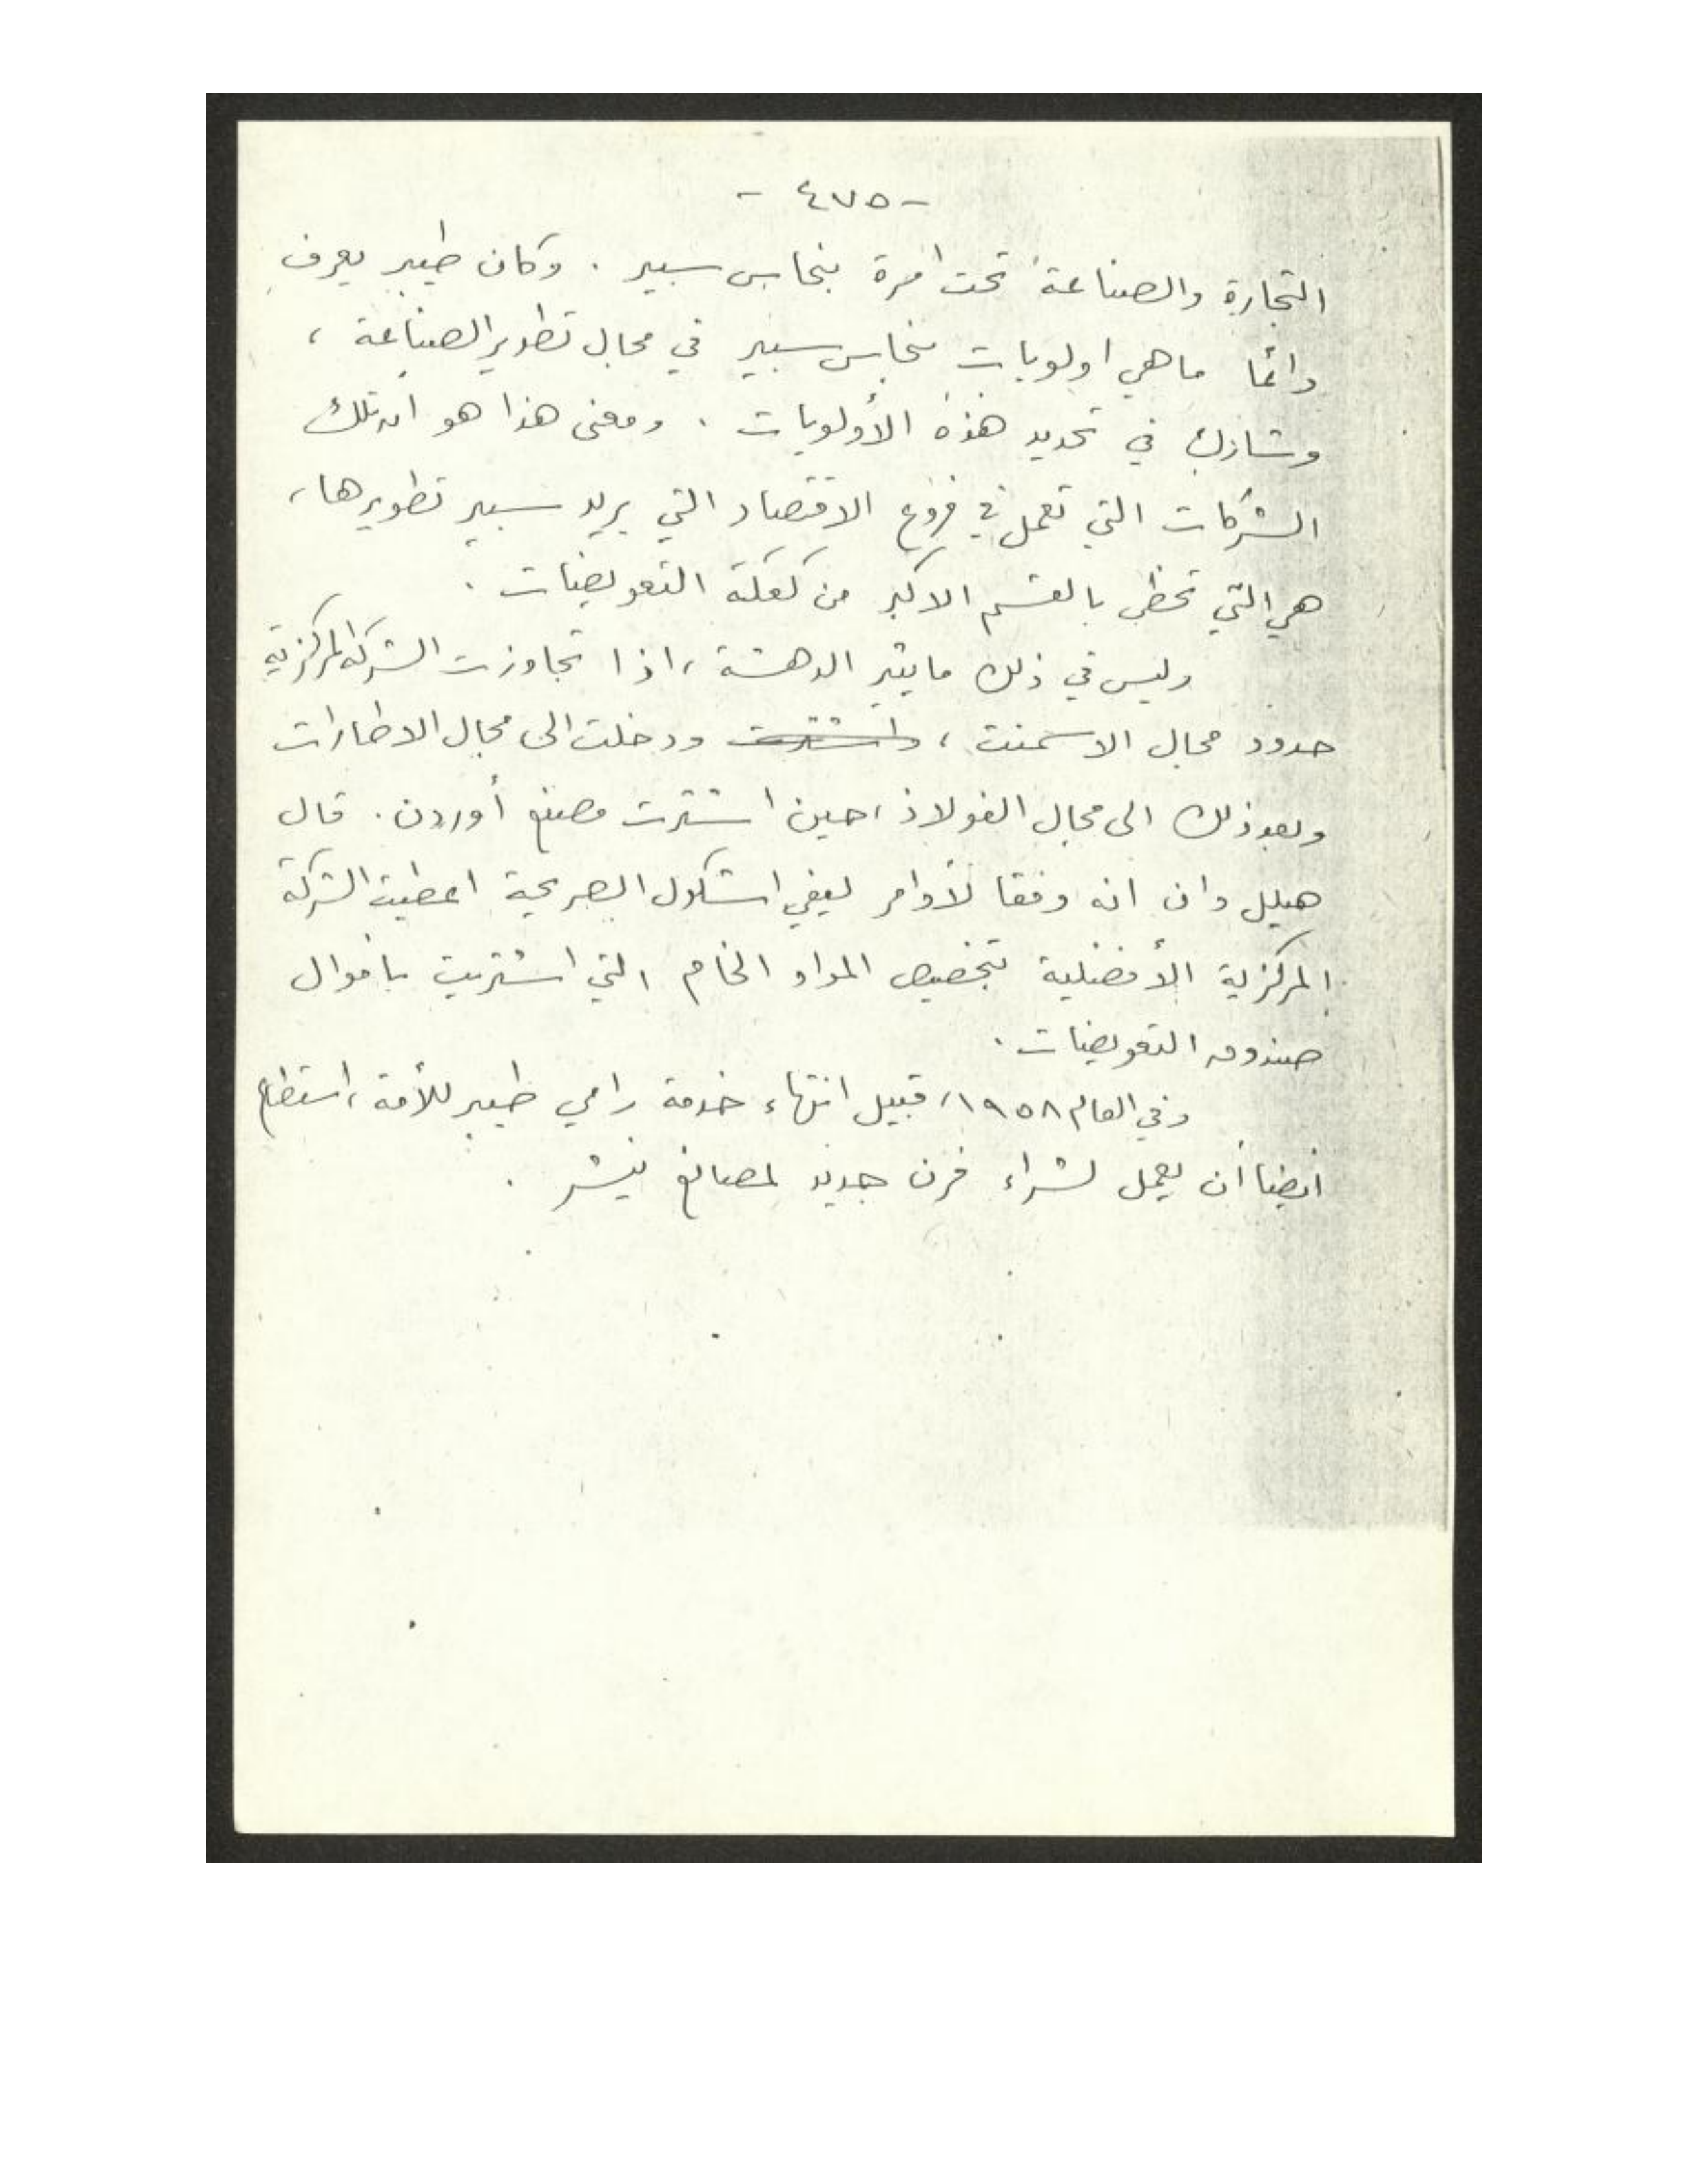 - ٤٧٥ -
التجارة والصناعة تحت امرة بنحاس سبير . وكان طيبر يعرف
دائما ماهي اولويات بنحاس سبير في مجال تطوير الصناعة ،
وشارك في تحديد هذه الأولويات . ومعنى هذا هو ان تلك
الشركات التي تعمل في فروع الاقتصاد التي يريد سبير تطويرها ،
هي التي تحظى بالقسم الاكبر من كعكة التعويضات .
وليس في ذلك مايثير الدهشة ، اذا تجاوزت الشركة المركزية
حدود مجال الاسمنت ، واشترت ودخلت الى مجال الاطارات
وبعد ذلك الى مجال الفولاذ ، حين اشترت مصنع أوردن . قال
هيلل دان انه وفقا لأوامر ليفي اشكول الصريحة اعطيت الشركة
المركزية الأفضلية بتخصيص المواد الخام التي اشتريت باموال
صندوق التعويضات .
وفي العام ١٩٥٨ ، قبيل انتهاء خدمة رامي طيبر للأمة ، استطاع
أيضا أن يعمل لشراء فرن جديد لمصانع نيشر .